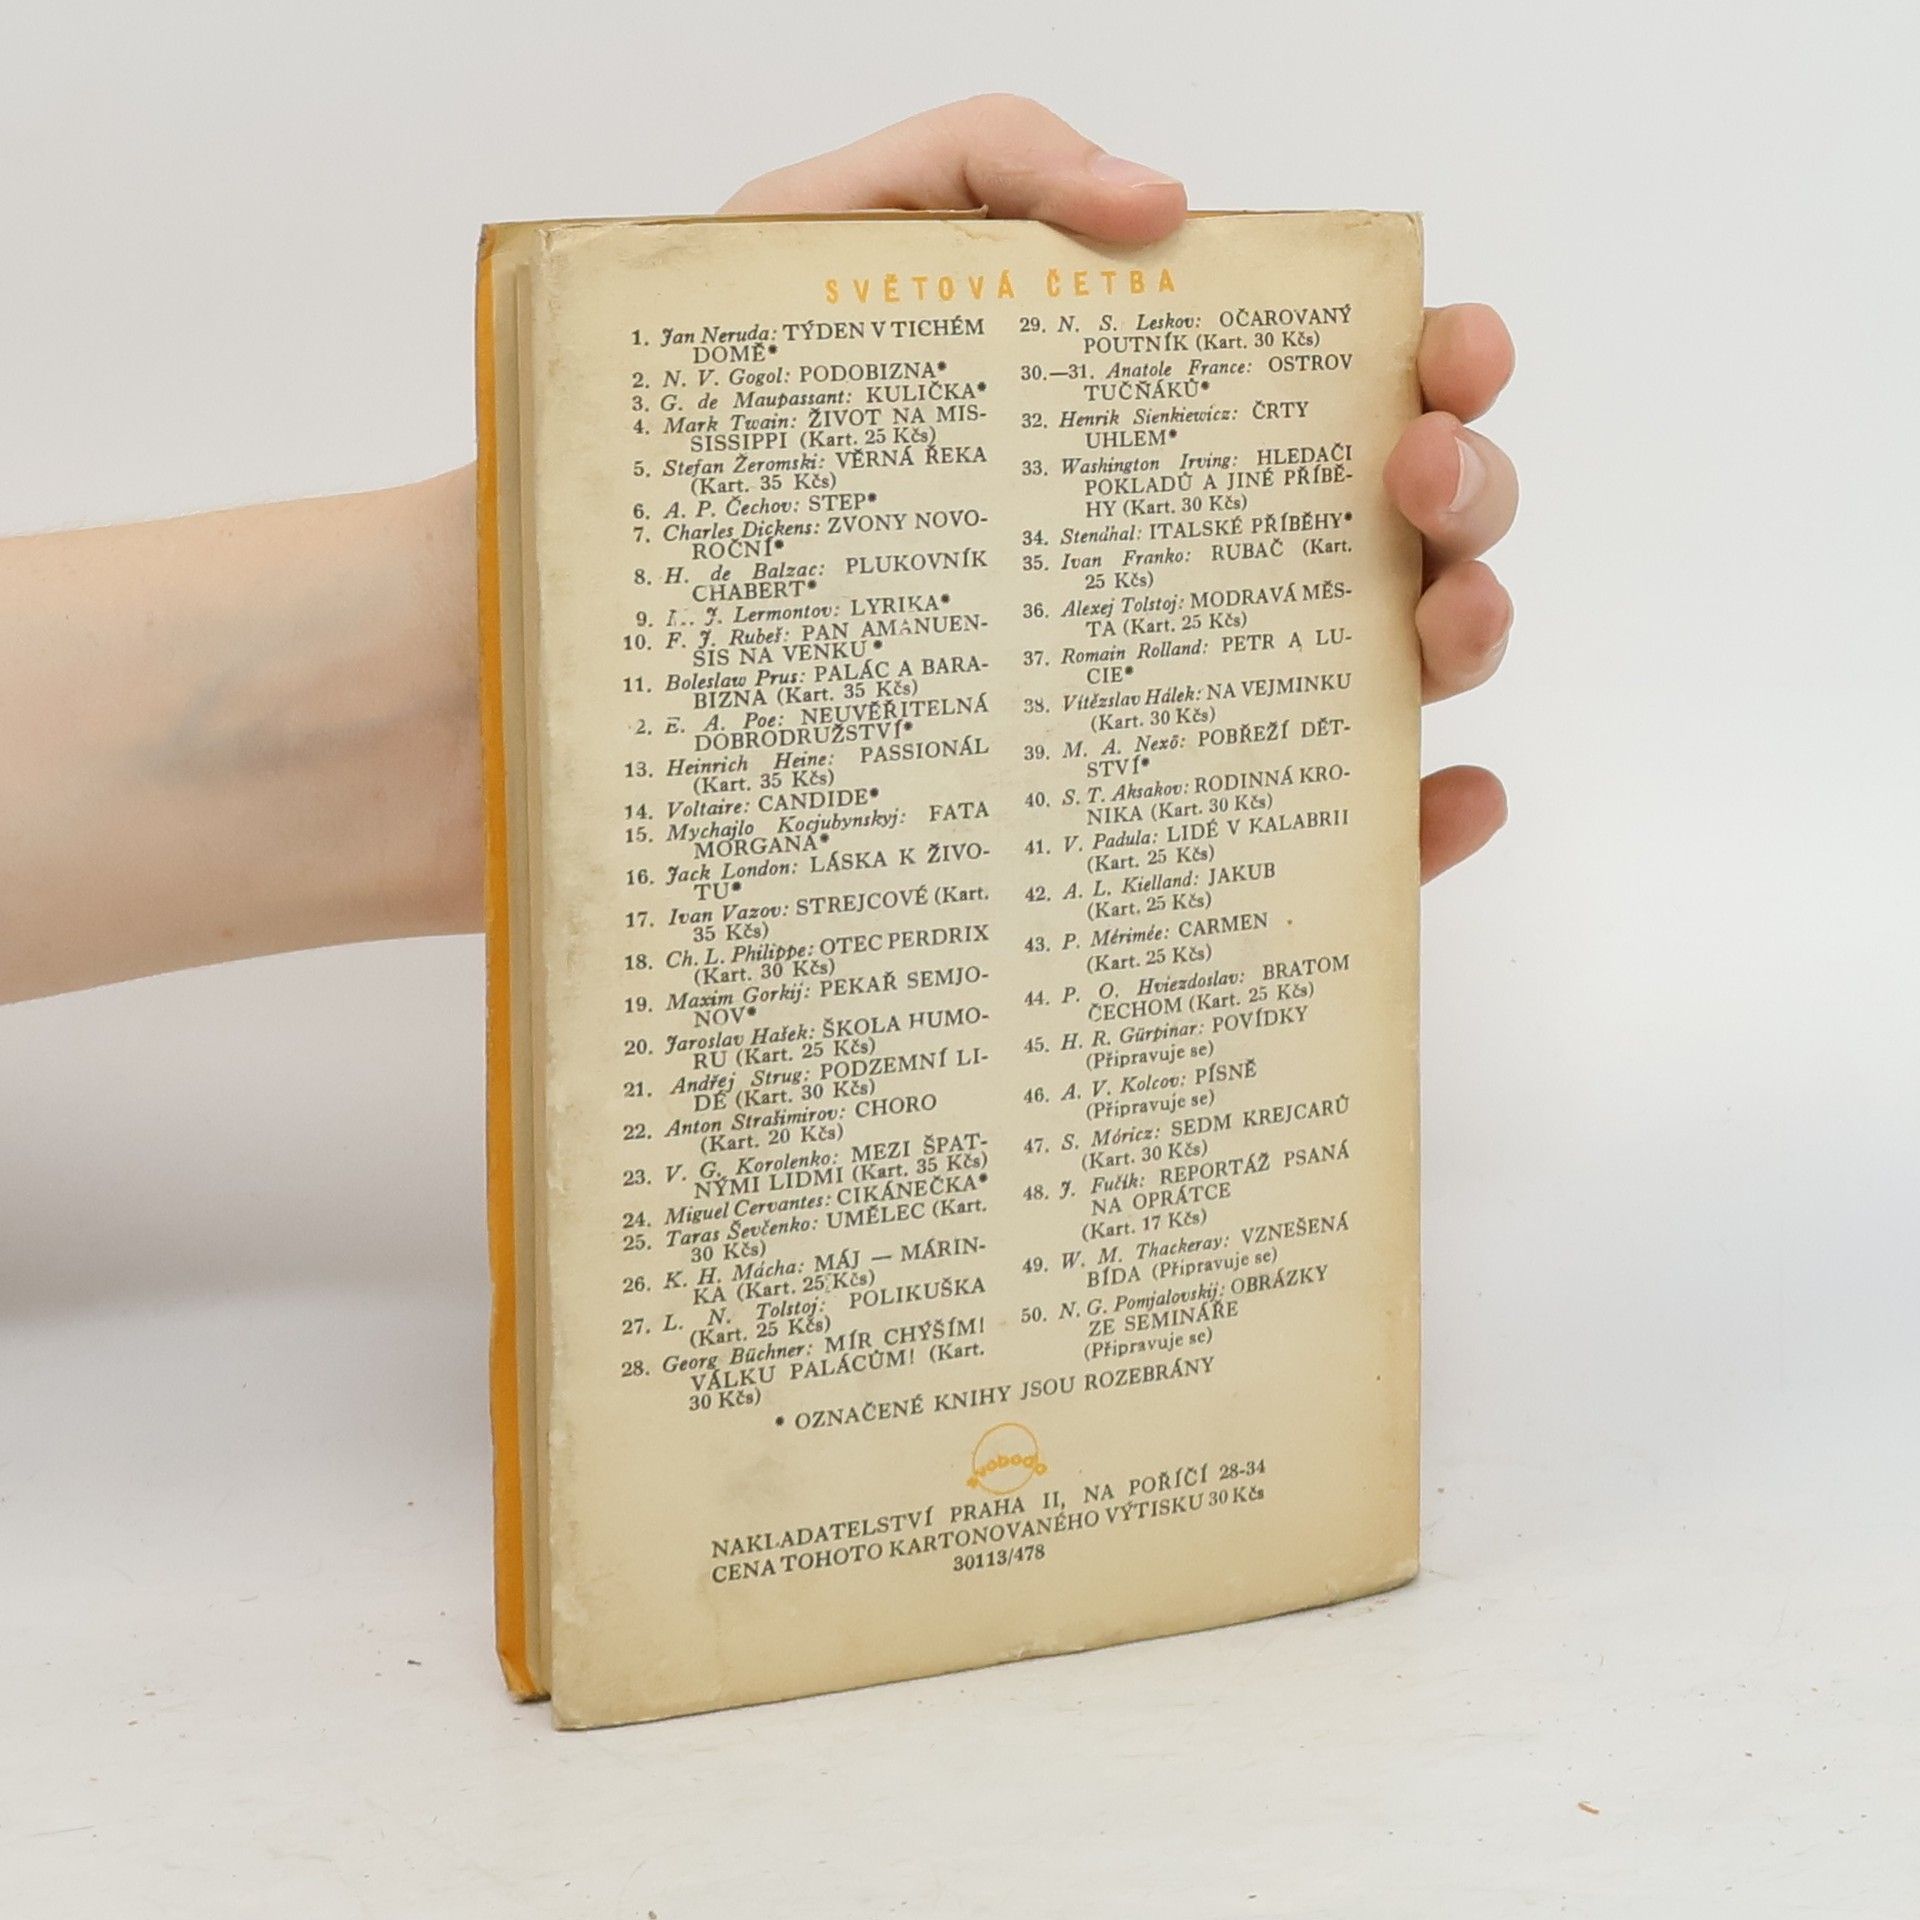 SVĚTOVÁ ČETBA
1. Jan Neruda: TÝDEN V TICHÉM
DOMĚ*
2. N. V. Gogol: PODOBIZNA*
3. G. de Maupassant: KULIČKA*
4. Mark Twain: ŽIVOT NA MIS-
SISSIPPI (Kart. 25 Kčs)
5. Stefan Žeromski: VĚRNÁ ŘEKA
(Kart. 35 Kčs)
6. A. P. Čechov: STEP*
7. Charles Dickens: ZVONY NOVO-
ROČNÍ*
8. H. de Balzac: PLUKOVNÍK
CHABERT*
9. J. Lermontov: LYRIKA*
10. F. J. Rubeš: PAN AMANUEN-
SIS NA VENKU*
11. Boleslaw Prus: PALÁC A BARA-
BIZNA (Kart. 35 Kčs)
2. E. A. Poe: NEUVĚŘITELNÁ
DOBRODRUŽSTVÍ*
13. Heinrich Heine: PASSIONÁL
(Kart. 35 Kčs)
14. Voltaire: CANDIDE*
15. Mychajlo Kocjubynskyj: FATA
MORGANA*
16. Jack London: LÁSKA K ŽIVO-
TU*
17. Ivan Vazov: STREJCOVÉ (Kart.
35 Kčs)
18. Ch. L. Philippe: OTEC PERDRIX
(Kart. 30 Kčs)
19. Maxim Gorkij: PEKAŘ SEMJO-
NOV*
20. Jaroslav Hašek: ŠKOLA HUMO-
RU (Kart. 25 Kčs)
21. Andřej Strug: PODZEMNÍ LI-
DÉ (Kart. 30 Kčs)
22. Anton Strašimirov: CHORO
(Kart. 20 Kčs)
23. V. G. Korolenko: MEZI ŠPAT-
NÝMI LIDMI (Kart. 35 Kčs)
24. Miguel Cervantes: CIKÁNEČKA*
25. Taras Ševčenko: UMĚLEC (Kart.
30 Kčs)
26. K. H. Mácha: MÁJ — MÁRIN-
KA (Kart. 25 Kčs)
27. L. N. Tolstoj: POLIKUŠKA
(Kart. 25 Kčs)
28. Georg Büchner: MÍR CHÝŠÍM!
VÁLKU PALÁCŮM! (Kart.
30 Kčs)
29. N. S. Leskov: OČAROVANÝ
POUTNÍK (Kart. 30 Kčs)
30.—31. Anatole France: OSTROV
TUČŇÁKŮ*
32. Henrik Sienkiewicz: ČRTY
UHLEM*
33. Washington Irving: HLEDAČI
POKLADŮ A JINÉ PŘÍBĚ-
HY (Kart. 30 Kčs)
34. Stendhal: ITALSKÉ PŘÍBĚHY*
35. Ivan Franko: RUBAČ (Kart.
25 Kčs)
36. Alexej Tolstoj: MODRAVÁ MĚS-
TA (Kart. 25 Kčs)
37. Romain Rolland: PETR A LU-
CIE*
38. Vítězslav Hálek: NA VEJMINKU
(Kart. 30 Kčs)
39. M. A. Nexö: POBŘEŽÍ DĚT-
STVÍ*
40. S. T. Aksakov: RODINNÁ KRO-
NIKA (Kart. 30 Kčs)
41. V. Padula: LIDÉ V KALABRII
(Kart. 25 Kčs)
42. A. L. Kielland: JAKUB
(Kart. 25 Kčs)
43. P. Mérimée: CARMEN
(Kart. 25 Kčs)
44. P. O. Hviezdoslav: BRATOM
ČECHOM (Kart. 25 Kčs)
45. H. R. Gürpinar: POVÍDKY
(Připravuje se)
46. A. V. Kolcov: PÍSNĚ
(Připravuje se)
47. S. Móricz: SEDM KREJCARŮ
(Kart. 30 Kčs)
48. J. Fučík: REPORTÁŽ PSANÁ
NA OPRÁTCE
(Kart. 17 Kčs)
49. W. M. Thackeray: VZNEŠENÁ
BÍDA (Připravuje se)
50. N. G. Pomjalovskij: OBRÁZKY
ZE SEMINÁŘE
(Připravuje se)
* OZNAČENÉ KNIHY JSOU ROZEBRÁNY
svoboda
NAKLADATELSTVÍ PRAHA II, NA POŘÍČÍ 28-34
CENA TOHOTO KARTONOVANÉHO VÝTISKU 30 Kčs
30113/478